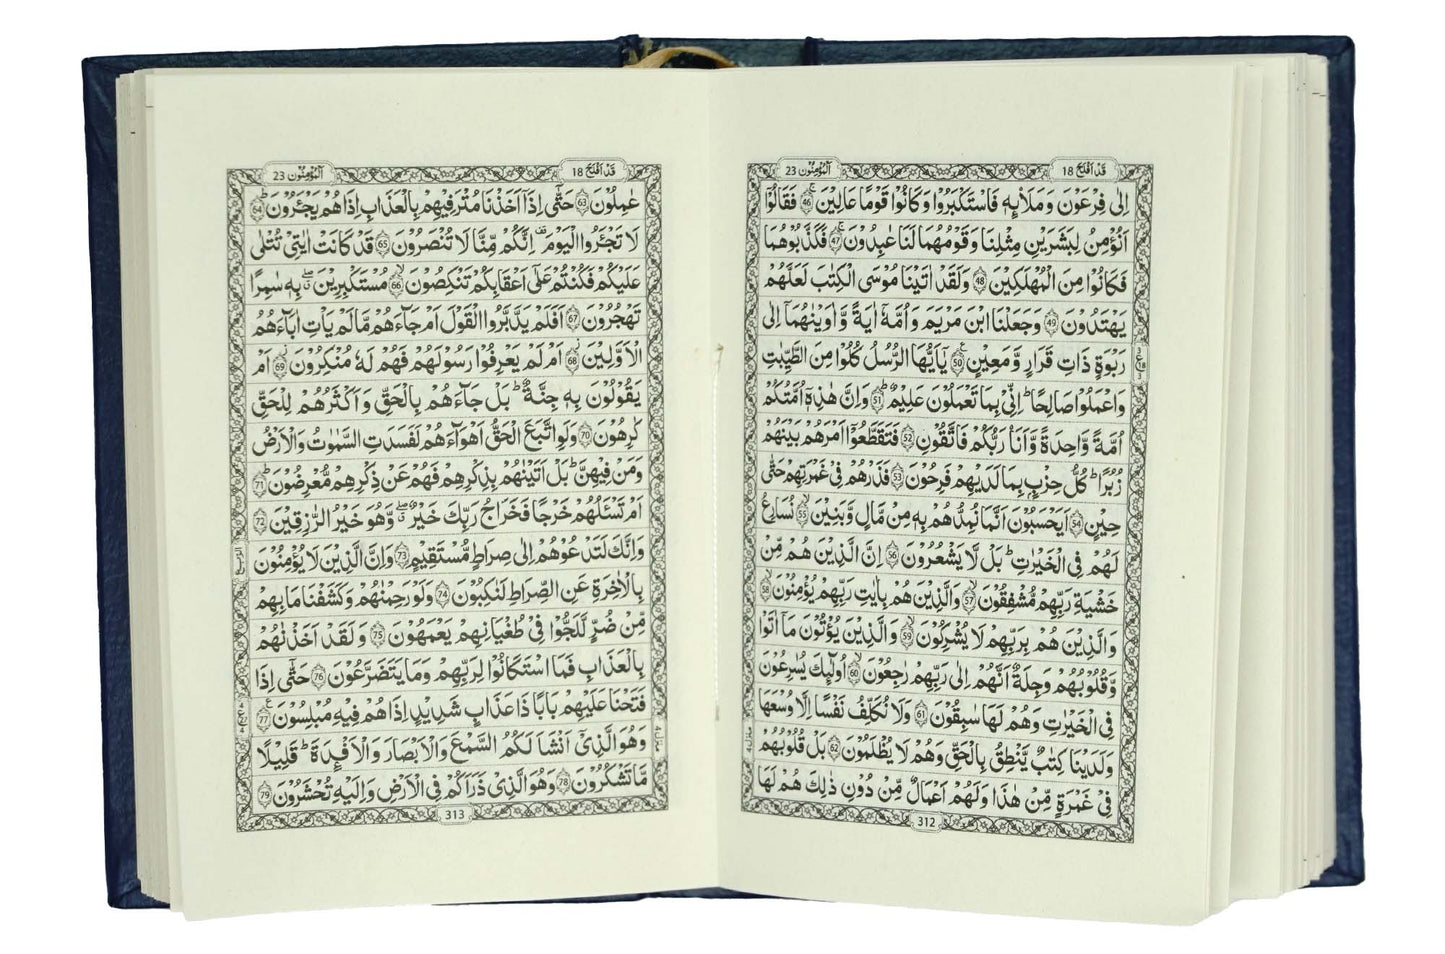 قد افلح 18
المؤمنون 23
اِلٰى فِرْعَوْنَ وَمَلَا۟ئِهٖ فَاسْتَكْبَرُوْا وَكَانُوْا قَوْمًا عَالِيْنَ ۚ ﴿46﴾ فَقَالُوْٓا
اَنُؤْمِنُ لِبَشَرَيْنِ مِثْلِنَا وَقَوْمُهُمَا لَنَا عٰبِدُوْنَ ۚ ﴿47﴾ فَكَذَّبُوْهُمَا
فَكَانُوْا مِنَ الْمُهْلَكِيْنَ ﴿48﴾ وَلَقَدْ اٰتَيْنَا مُوْسَى الْكِتٰبَ لَعَلَّهُمْ
يَهْتَدُوْنَ ﴿49﴾ وَجَعَلْنَا ابْنَ مَرْيَمَ وَاُمَّهٗٓ اٰيَةً وَّاٰوَيْنٰهُمَآ اِلٰى
رَبْوَةٍ ذَاتِ قَرَارٍ وَّمَعِيْنٍ ﴿50﴾ يٰٓاَيُّهَا الرُّسُلُ كُلُوْا مِنَ الطَّيِّبٰتِ
وَاعْمَلُوْا صَالِحًا ؕ اِنِّيْ بِمَا تَعْمَلُوْنَ عَلِيْمٌ ؕ ﴿51﴾ وَاِنَّ هٰذِهٖٓ اُمَّتُكُمْ
اُمَّةً وَّاحِدَةً وَّاَنَا رَبُّكُمْ فَاتَّقُوْنِ ﴿52﴾ فَتَقَطَّعُوْٓا اَمْرَهُمْ بَيْنَهُمْ
زُبُرًا ؕ كُلُّ حِزْبٍۭ بِمَا لَدَيْهِمْ فَرِحُوْنَ ﴿53﴾ فَذَرْهُمْ فِيْ غَمْرَتِهِمْ حَتّٰى
حِيْنٍ ﴿54﴾ اَيَحْسَبُوْنَ اَنَّمَا نُمِدُّهُمْ بِهٖ مِنْ مَّالٍ وَّبَنِيْنَ ۙ ﴿55﴾ نُسَارِعُ
لَهُمْ فِي الْخَيْرٰتِ ؕ بَلْ لَّا يَشْعُرُوْنَ ﴿56﴾ اِنَّ الَّذِيْنَ هُمْ مِّنْ
خَشْيَةِ رَبِّهِمْ مُّشْفِقُوْنَ ۙ ﴿57﴾ وَالَّذِيْنَ هُمْ بِاٰيٰتِ رَبِّهِمْ يُؤْمِنُوْنَ ۙ ﴿58﴾
وَالَّذِيْنَ هُمْ بِرَبِّهِمْ لَا يُشْرِكُوْنَ ۙ ﴿59﴾ وَالَّذِيْنَ يُؤْتُوْنَ مَآ اٰتَوْا
وَّقُلُوْبُهُمْ وَجِلَةٌ اَنَّهُمْ اِلٰى رَبِّهِمْ رٰجِعُوْنَ ۙ ﴿60﴾ اُولٰٓئِكَ يُسٰرِعُوْنَ
فِي الْخَيْرٰتِ وَهُمْ لَهَا سٰبِقُوْنَ ﴿61﴾ وَلَا نُكَلِّفُ نَفْسًا اِلَّا وُسْعَهَا
وَلَدَيْنَا كِتٰبٌ يَّنْطِقُ بِالْحَقِّ وَهُمْ لَا يُظْلَمُوْنَ ﴿62﴾ بَلْ قُلُوْبُهُمْ
فِيْ غَمْرَةٍ مِّنْ هٰذَا وَلَهُمْ اَعْمَالٌ مِّنْ دُوْنِ ذٰلِكَ هُمْ لَهَا
312
قد افلح 18
المؤمنون 23
عٰمِلُوْنَ ﴿63﴾ حَتّٰٓى اِذَآ اَخَذْنَا مُتْرَفِيْهِمْ بِالْعَذَابِ اِذَا هُمْ يَجْـَٔرُوْنَ ؕ ﴿64﴾
لَا تَجْـَٔرُوا الْيَوْمَ اِنَّكُمْ مِّنَّا لَا تُنْصَرُوْنَ ﴿65﴾ قَدْ كَانَتْ اٰيٰتِيْ تُتْلٰى
عَلَيْكُمْ فَكُنْتُمْ عَلٰٓى اَعْقَابِكُمْ تَنْكِصُوْنَ ۙ ﴿66﴾ مُسْتَكْبِرِيْنَ بِهٖ سٰمِرًا
تَهْجُرُوْنَ ﴿67﴾ اَفَلَمْ يَدَّبَّرُوا الْقَوْلَ اَمْ جَآءَهُمْ مَّا لَمْ يَاْتِ اٰبَآءَهُمُ
الْاَوَّلِيْنَ ﴿68﴾ اَمْ لَمْ يَعْرِفُوْا رَسُوْلَهُمْ فَهُمْ لَهٗ مُنْكِرُوْنَ ﴿69﴾ اَمْ
يَقُوْلُوْنَ بِهٖ جِنَّةٌ ؕ بَلْ جَآءَهُمْ بِالْحَقِّ وَاَكْثَرُهُمْ لِلْحَقِّ
كٰرِهُوْنَ ﴿70﴾ وَلَوِ اتَّبَعَ الْحَقُّ اَهْوَآءَهُمْ لَفَسَدَتِ السَّمٰوٰتُ وَالْاَرْضُ
وَمَنْ فِيْهِنَّ ؕ بَلْ اَتَيْنٰهُمْ بِذِكْرِهِمْ فَهُمْ عَنْ ذِكْرِهِمْ مُّعْرِضُوْنَ ؕ ﴿71﴾
اَمْ تَسْـَٔلُهُمْ خَرْجًا فَخَرَاجُ رَبِّكَ خَيْرٌ وَّهُوَ خَيْرُ الرّٰزِقِيْنَ ﴿72﴾
وَاِنَّكَ لَتَدْعُوْهُمْ اِلٰى صِرَاطٍ مُّسْتَقِيْمٍ ﴿73﴾ وَاِنَّ الَّذِيْنَ لَا يُؤْمِنُوْنَ
بِالْاٰخِرَةِ عَنِ الصِّرَاطِ لَنٰكِبُوْنَ ﴿74﴾ وَلَوْ رَحِمْنٰهُمْ وَكَشَفْنَا مَا بِهِمْ
مِّنْ ضُرٍّ لَّلَجُّوْا فِيْ طُغْيَانِهِمْ يَعْمَهُوْنَ ﴿75﴾ وَلَقَدْ اَخَذْنٰهُمْ
بِالْعَذَابِ فَمَا اسْتَكَانُوْا لِرَبِّهِمْ وَمَا يَتَضَرَّعُوْنَ ﴿76﴾ حَتّٰٓى اِذَا
فَتَحْنَا عَلَيْهِمْ بَابًا ذَا عَذَابٍ شَدِيْدٍ اِذَا هُمْ فِيْهِ مُبْلِسُوْنَ ﴿77﴾
وَهُوَ الَّذِيْٓ اَنْشَاَ لَكُمُ السَّمْعَ وَالْاَبْصَارَ وَالْاَفْـِٕدَةَ ؕ قَلِيْلًا
مَّا تَشْكُرُوْنَ ﴿78﴾ وَهُوَ الَّذِيْ ذَرَاَكُمْ فِي الْاَرْضِ وَاِلَيْهِ تُحْشَرُوْنَ ﴿79﴾
313